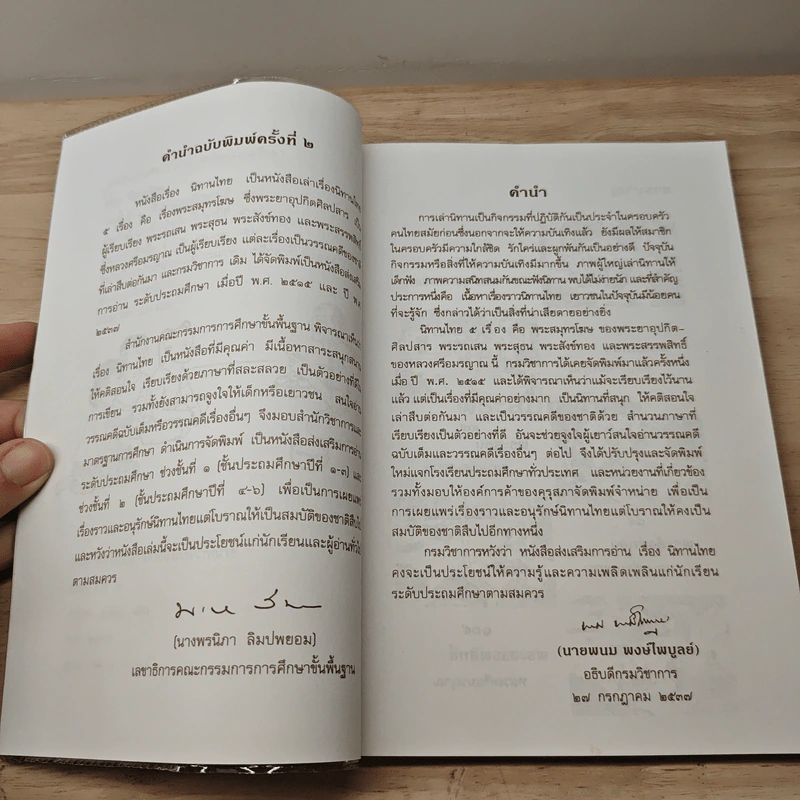 คำนำฉบับพิมพ์ครั้งที่ ๒
หนังสือเรื่อง นิทานไทย เป็นหนังสือเล่าเรื่องนิทานไทย
๕ เรื่อง คือ เรื่องพระสมุทรโฆษ ซึ่งพระยาอุปกิตศิลปสาร เป็น
ผู้เรียบเรียง พระรถเสน พระสุธน พระสังข์ทอง และพระสรรพสิทธิ์
ซึ่งหลวงศรีอมรญาณ เป็นผู้เรียบเรียง แต่ละเรื่องเป็นวรรณคดีของชาติ
ที่เล่าสืบต่อกันมา และกรมวิชาการ เดิม ได้จัดพิมพ์เป็นหนังสือส่งเสริม
การอ่าน ระดับประถมศึกษา เมื่อปี พ.ศ. ๒๕๑๕ และ ปี พ.ศ.
๒๕๓๗
สำนักงานคณะกรรมการการศึกษาขั้นพื้นฐาน พิจารณาเห็นว่า
เรื่อง นิทานไทย เป็นหนังสือที่มีคุณค่า มีเนื้อหาสาระสนุกสนาน
ให้คติสอนใจ เรียบเรียงด้วยภาษาที่สละสลวย เป็นตัวอย่างที่ดีใน
การเขียน รวมทั้งยังสามารถจูงใจให้เด็กหรือเยาวชน สนใจอ่าน
วรรณคดีฉบับเต็มหรือวรรณคดีเรื่องอื่นๆ จึงมอบสำนักวิชาการและ
มาตรฐานการศึกษา ดำเนินการจัดพิมพ์ เป็นหนังสือส่งเสริมการอ่าน
ระดับประถมศึกษา ช่วงชั้นที่ ๑ (ชั้นประถมศึกษาปีที่ ๑-๓) และ
ช่วงชั้นที่ ๒ (ชั้นประถมศึกษาปีที่ ๔-๖) เพื่อเป็นการเผยแพร่
เรื่องราวและอนุรักษ์นิทานไทยแต่โบราณให้เป็นสมบัติของชาติสืบไป
และหวังว่าหนังสือเล่มนี้จะเป็นประโยชน์แก่นักเรียนและผู้อ่านทั่วไป
ตามสมควร
(นางพรนิภา ลิมปพยอม)
เลขาธิการคณะกรรมการการศึกษาขั้นพื้นฐาน
คำนำ
การเล่านิทานเป็นกิจกรรมที่ปฏิบัติกันเป็นประจำในครอบครัว
คนไทยสมัยก่อนซึ่งนอกจากจะให้ความบันเทิงแล้ว ยังมีผลให้สมาชิก
ในครอบครัวมีความใกล้ชิด รักใคร่และผูกพันกันเป็นอย่างดี ปัจจุบัน
กิจกรรมหรือสิ่งที่ให้ความบันเทิงมีมากขึ้น ภาพผู้ใหญ่เล่านิทานให้
เด็กฟัง ภาพความสนิทสนมกันขณะฟังนิทาน พบได้ไม่ง่ายนัก และที่สำคัญ
ประการหนึ่งคือ เนื้อหาเรื่องราวนิทานไทย เยาวชนในปัจจุบันมีน้อยคน
ที่จะรู้จัก ซึ่งกล่าวได้ว่าเป็นสิ่งที่น่าเสียดายอย่างยิ่ง
นิทานไทย ๕ เรื่อง คือ พระสมุทรโฆษ ของพระยาอุปกิต-
ศิลปสาร พระรถเสน พระสุธน พระสังข์ทอง และพระสรรพสิทธิ์
ของหลวงศรีอมรญาณ นี้ กรมวิชาการได้เคยจัดพิมพ์มาแล้วครั้งหนึ่ง
เมื่อ ปี พ.ศ. ๒๕๑๕ และได้พิจารณาเห็นว่าแม้จะเรียบเรียงไว้นาน
แล้ว แต่เป็นเรื่องที่มีคุณค่าอย่างมาก เป็นนิทานที่สนุก ให้คติสอนใจ
เล่าสืบต่อกันมา และเป็นวรรณคดีของชาติด้วย สำนวนภาษาที่
เรียบเรียงเป็นตัวอย่างที่ดี อันจะช่วยจูงใจผู้เยาว์สนใจอ่านวรรณคดี
ฉบับเต็มและวรรณคดีเรื่องอื่นๆ ต่อไป จึงได้ปรับปรุงและจัดพิมพ์
ใหม่แจกโรงเรียนประถมศึกษาทั่วประเทศ และหน่วยงานที่เกี่ยวข้อง
รวมทั้งมอบให้องค์การค้าของคุรุสภาจัดพิมพ์จำหน่าย เพื่อเป็น
การเผยแพร่เรื่องราวและอนุรักษ์นิทานไทยแต่โบราณให้คงเป็น
สมบัติของชาติสืบไปอีกทางหนึ่ง
กรมวิชาการหวังว่า หนังสือส่งเสริมการอ่าน เรื่อง นิทานไทย
คงจะเป็นประโยชน์ให้ความรู้และความเพลิดเพลินแก่นักเรียน
ระดับประถมศึกษาตามสมควร
(นายพนม พงษ์ไพบูลย์)
อธิบดีกรมวิชาการ
๒๗ กรกฎาคม ๒๕๓๗